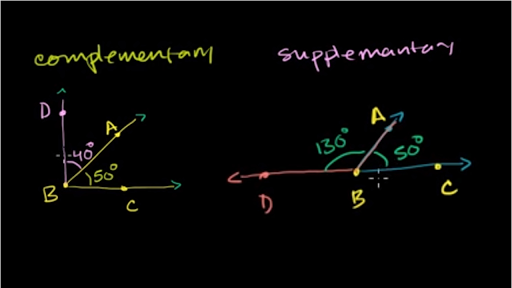 complementary
supplemantary
D
A
40°
50°
B
C
A
130°
50°
D
B
C